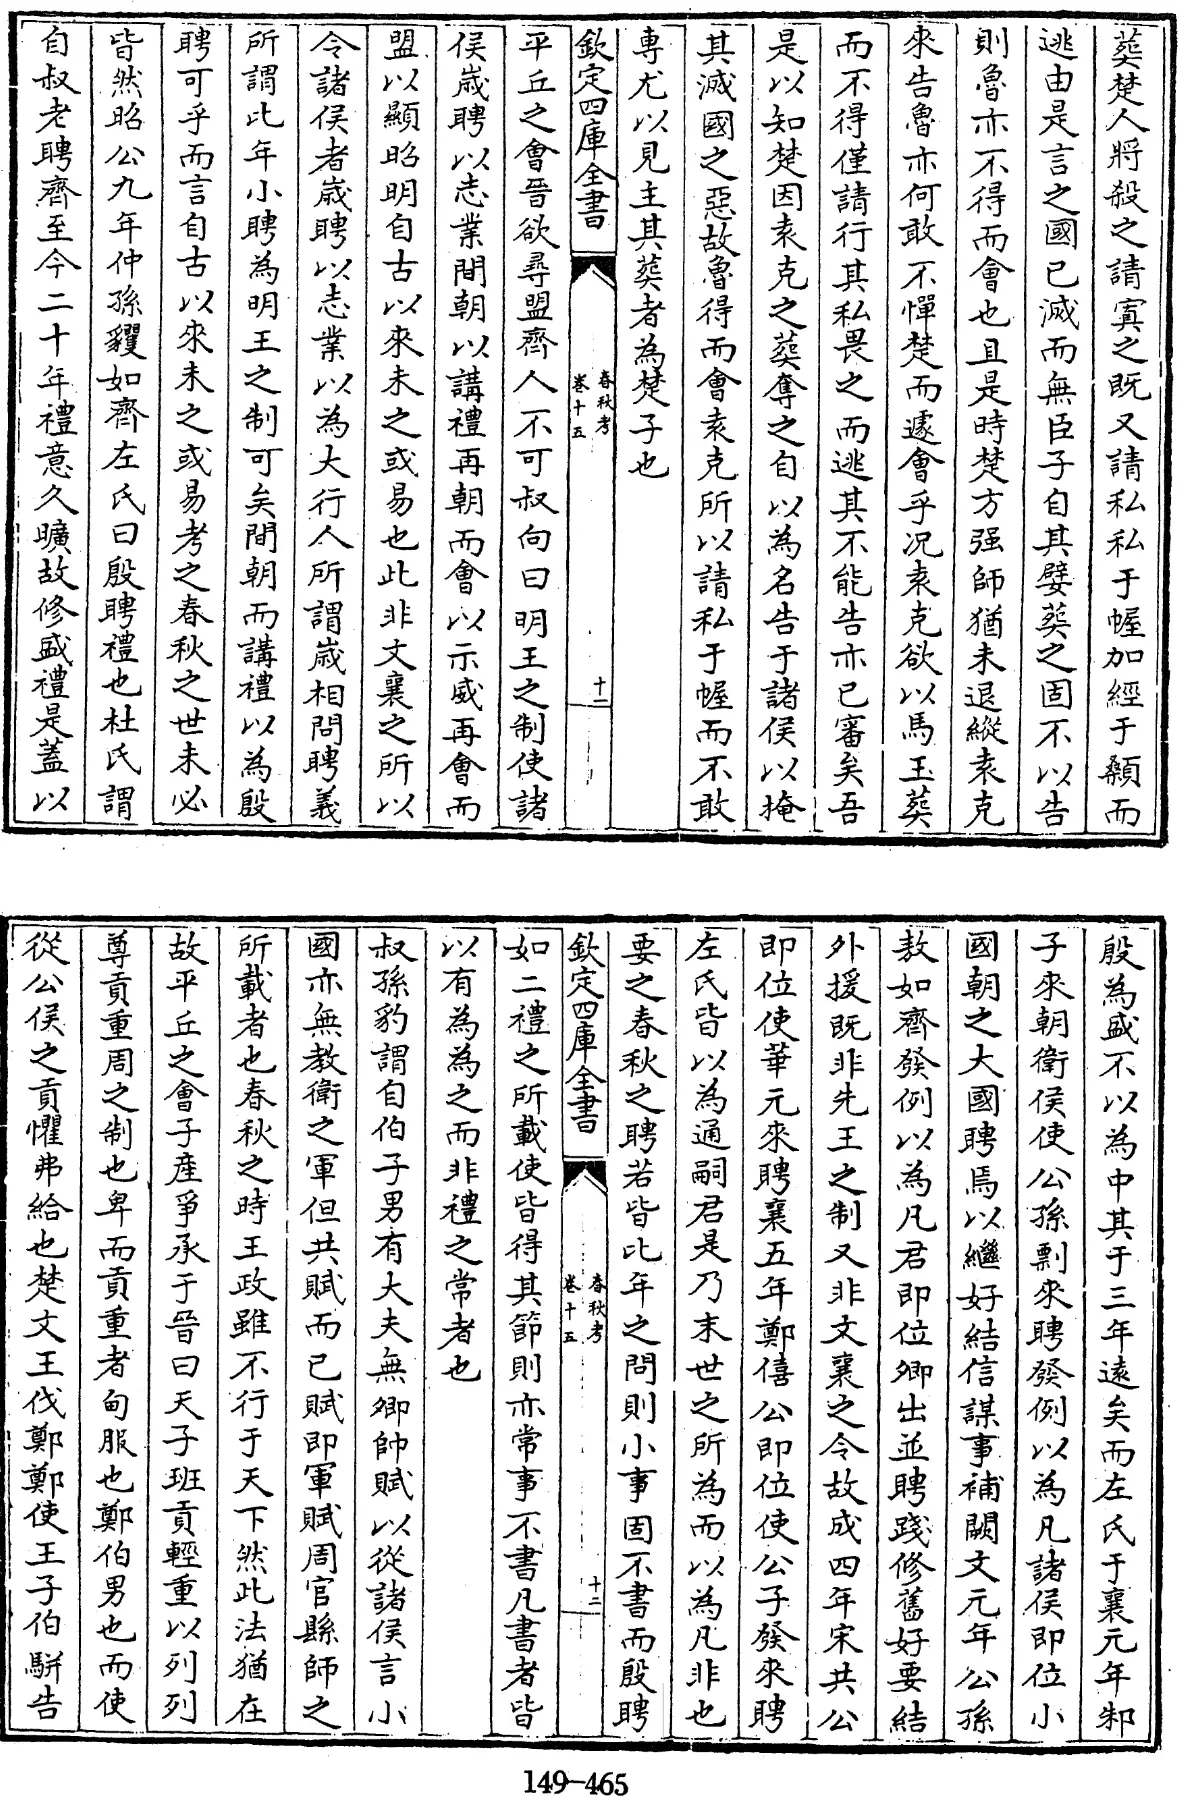 葬楚人將殺之請寘之既又請私私于幄加絰于顙而
逃由是言之國已滅而無臣子自其嬖葬之固不以告
則魯亦不得而會也且是時楚方强師猶未退縱袁克
來告魯亦何敢不憚楚而遽會乎况袁克欲以馬玉葬
而不得僅請行其私畏之而逃其不能告亦已審矣吾
是以知楚因袁克之葬奪之自以為名告于諸侯以掩
其滅國之惡故魯得而會袁克所以請私于幄而不敢
専尤以見主其葬者為楚子也
欽定四庫全書
春秋考
卷十五
十一
平丘之會晉欲尋盟齊人不可叔向曰明王之制使諸
侯歲聘以志業間朝以講禮再朝而會以示威再會而
盟以顯昭明自古以來未之或易也此非文襄之所以
令諸侯者歲聘以志業以為大行人所謂歲相問聘義
所謂比年小聘為明王之制可矣間朝而講禮以為殷
聘可乎而言自古以來未之或易考之春秋之世未必
皆然昭公九年仲孫貜如齊左氏曰殷聘禮也杜氏謂
自叔老聘齊至今二十年禮意久曠故修盛禮是蓋以
殷為盛不以為中其于三年遠矣而左氏于襄元年邾
子來朝衛侯使公孫剽來聘發例以為凡諸侯即位小
國朝之大國聘焉以繼好結信謀事補闕文元年公孫
敖如齊發例以為凡君即位卿出並聘踐修舊好要結
外援既非先王之制又非文襄之令故成四年宋共公
即位使華元來聘襄五年鄭僖公即位使公子發來聘
左氏皆以為通嗣君是乃末世之所為而以為凡非也
要之春秋之聘若皆比年之問則小事固不書而殷聘
欽定四庫全書
春秋考
卷十五
十二
如二禮之所載使皆得其節則亦常事不書凡書者皆
以有為為之而非禮之常者也
叔孫豹謂自伯子男有大夫無卿帥賦以從諸侯言小
國亦無教衛之軍但共賦而已賦即軍賦周官縣師之
所載者也春秋之時王政雖不行于天下然此法猶在
故平丘之會子產爭承于晉曰天子班貢輕重以列列
尊貢重周之制也卑而貢重者甸服也鄭伯男也而使
從公侯之貢懼弗給也楚文王伐鄭鄭使王子伯駢告
149-465